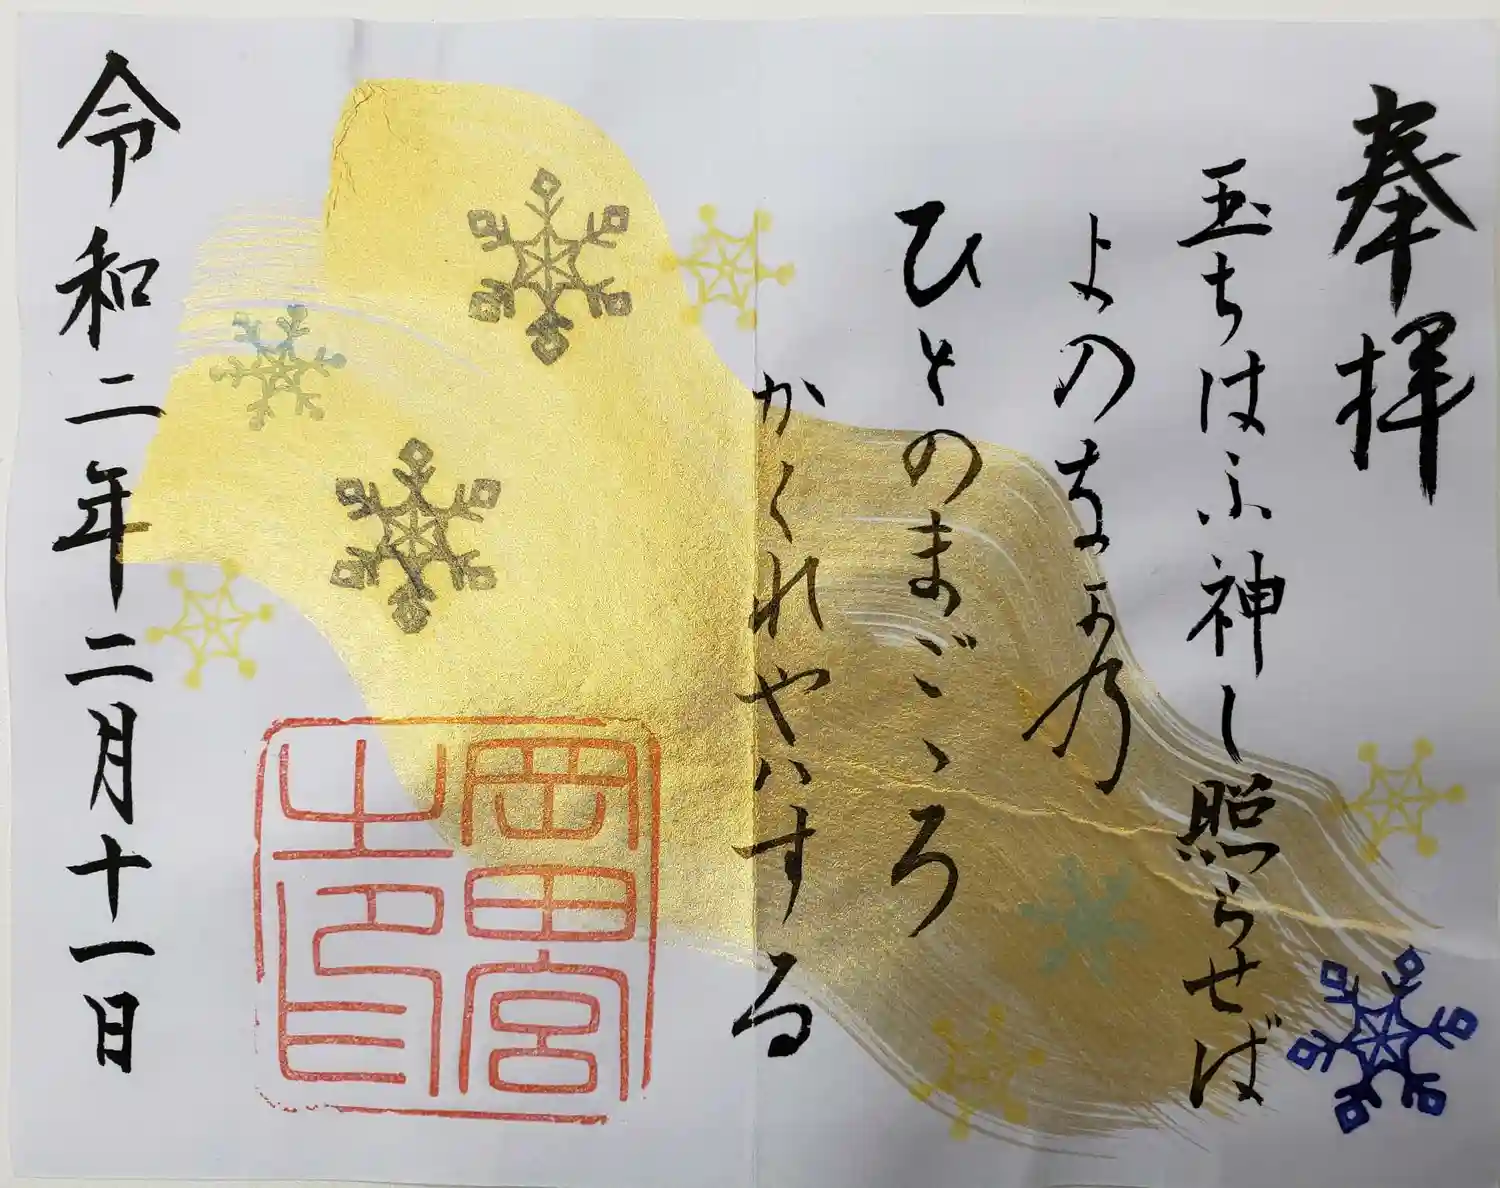 奉拝
玉ちはふ神し照らせば
よのなか乃
ひとのまごゝろ
かくれやハする
令和二年二月十一日
岡田宮
之印